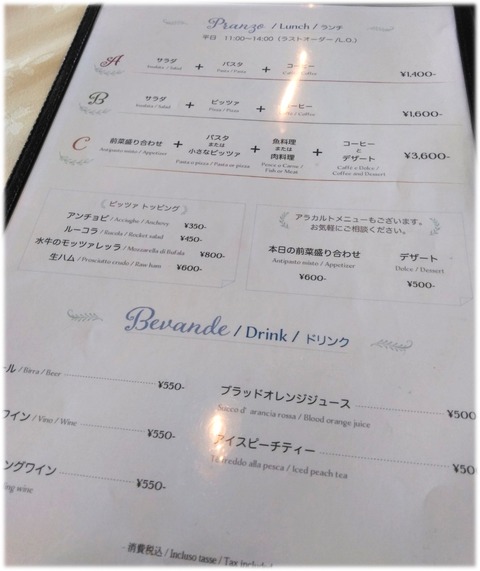 Pranzo / Lunch / ランチ
平日 11:00~14:00 (ラストオーダー/L.O.)
A サラダ + パスタ + コーヒー ¥1,400-
Insalata / Salad Pasta / Pasta Caffè / Coffee
B サラダ + ピッツァ + コーヒー ¥1,600-
Insalata / Salad Pizza / Pizza / Coffee
C 前菜盛り合わせ + パスタ または 小さなピッツァ + 魚料理 または 肉料理 + コーヒー と デザート ¥3,600-
Antipasto misto / Appetizer Pasta o pizza / Pasta or pizza Pesce o Carne / Fish or Meat Caffè e Dolce / Coffee and Dessert
ピッツァ トッピング
アンチョビ / Acciughe / Anchovy ¥350-
ルーコラ / Rucola / Rocket salad ¥450-
水牛のモッツァレッラ / Mozzarella di Bufala ¥800-
生ハム / Prosciutto crudo / Raw ham ¥600-
アラカルトメニューもございます。
お気軽にご相談ください。
本日の前菜盛り合わせ デザート
Antipasto misto / Appetizer Dolce / Dessert
¥600- ¥500-
Bevande / Drink / ドリンク
ール / Birra / Beer ¥550-
ワイン / Vino / Wine ¥550-
ングワイン ¥550-
ing wine
ブラッドオレンジジュース ¥500
Succo d' arancia rossa / Blood orange juice
アイスピーチティー ¥50
freddo alla pesca / Iced peach tea
- 消費税込 / Incluso tasse / Tax includ